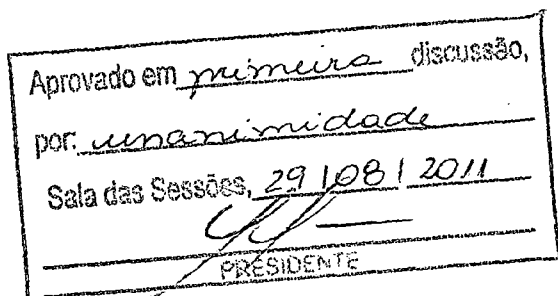 Aprovado em primeira discussão,
por: unanimidade
Sala das Sessões, 29/08/2011
PRESIDENTE